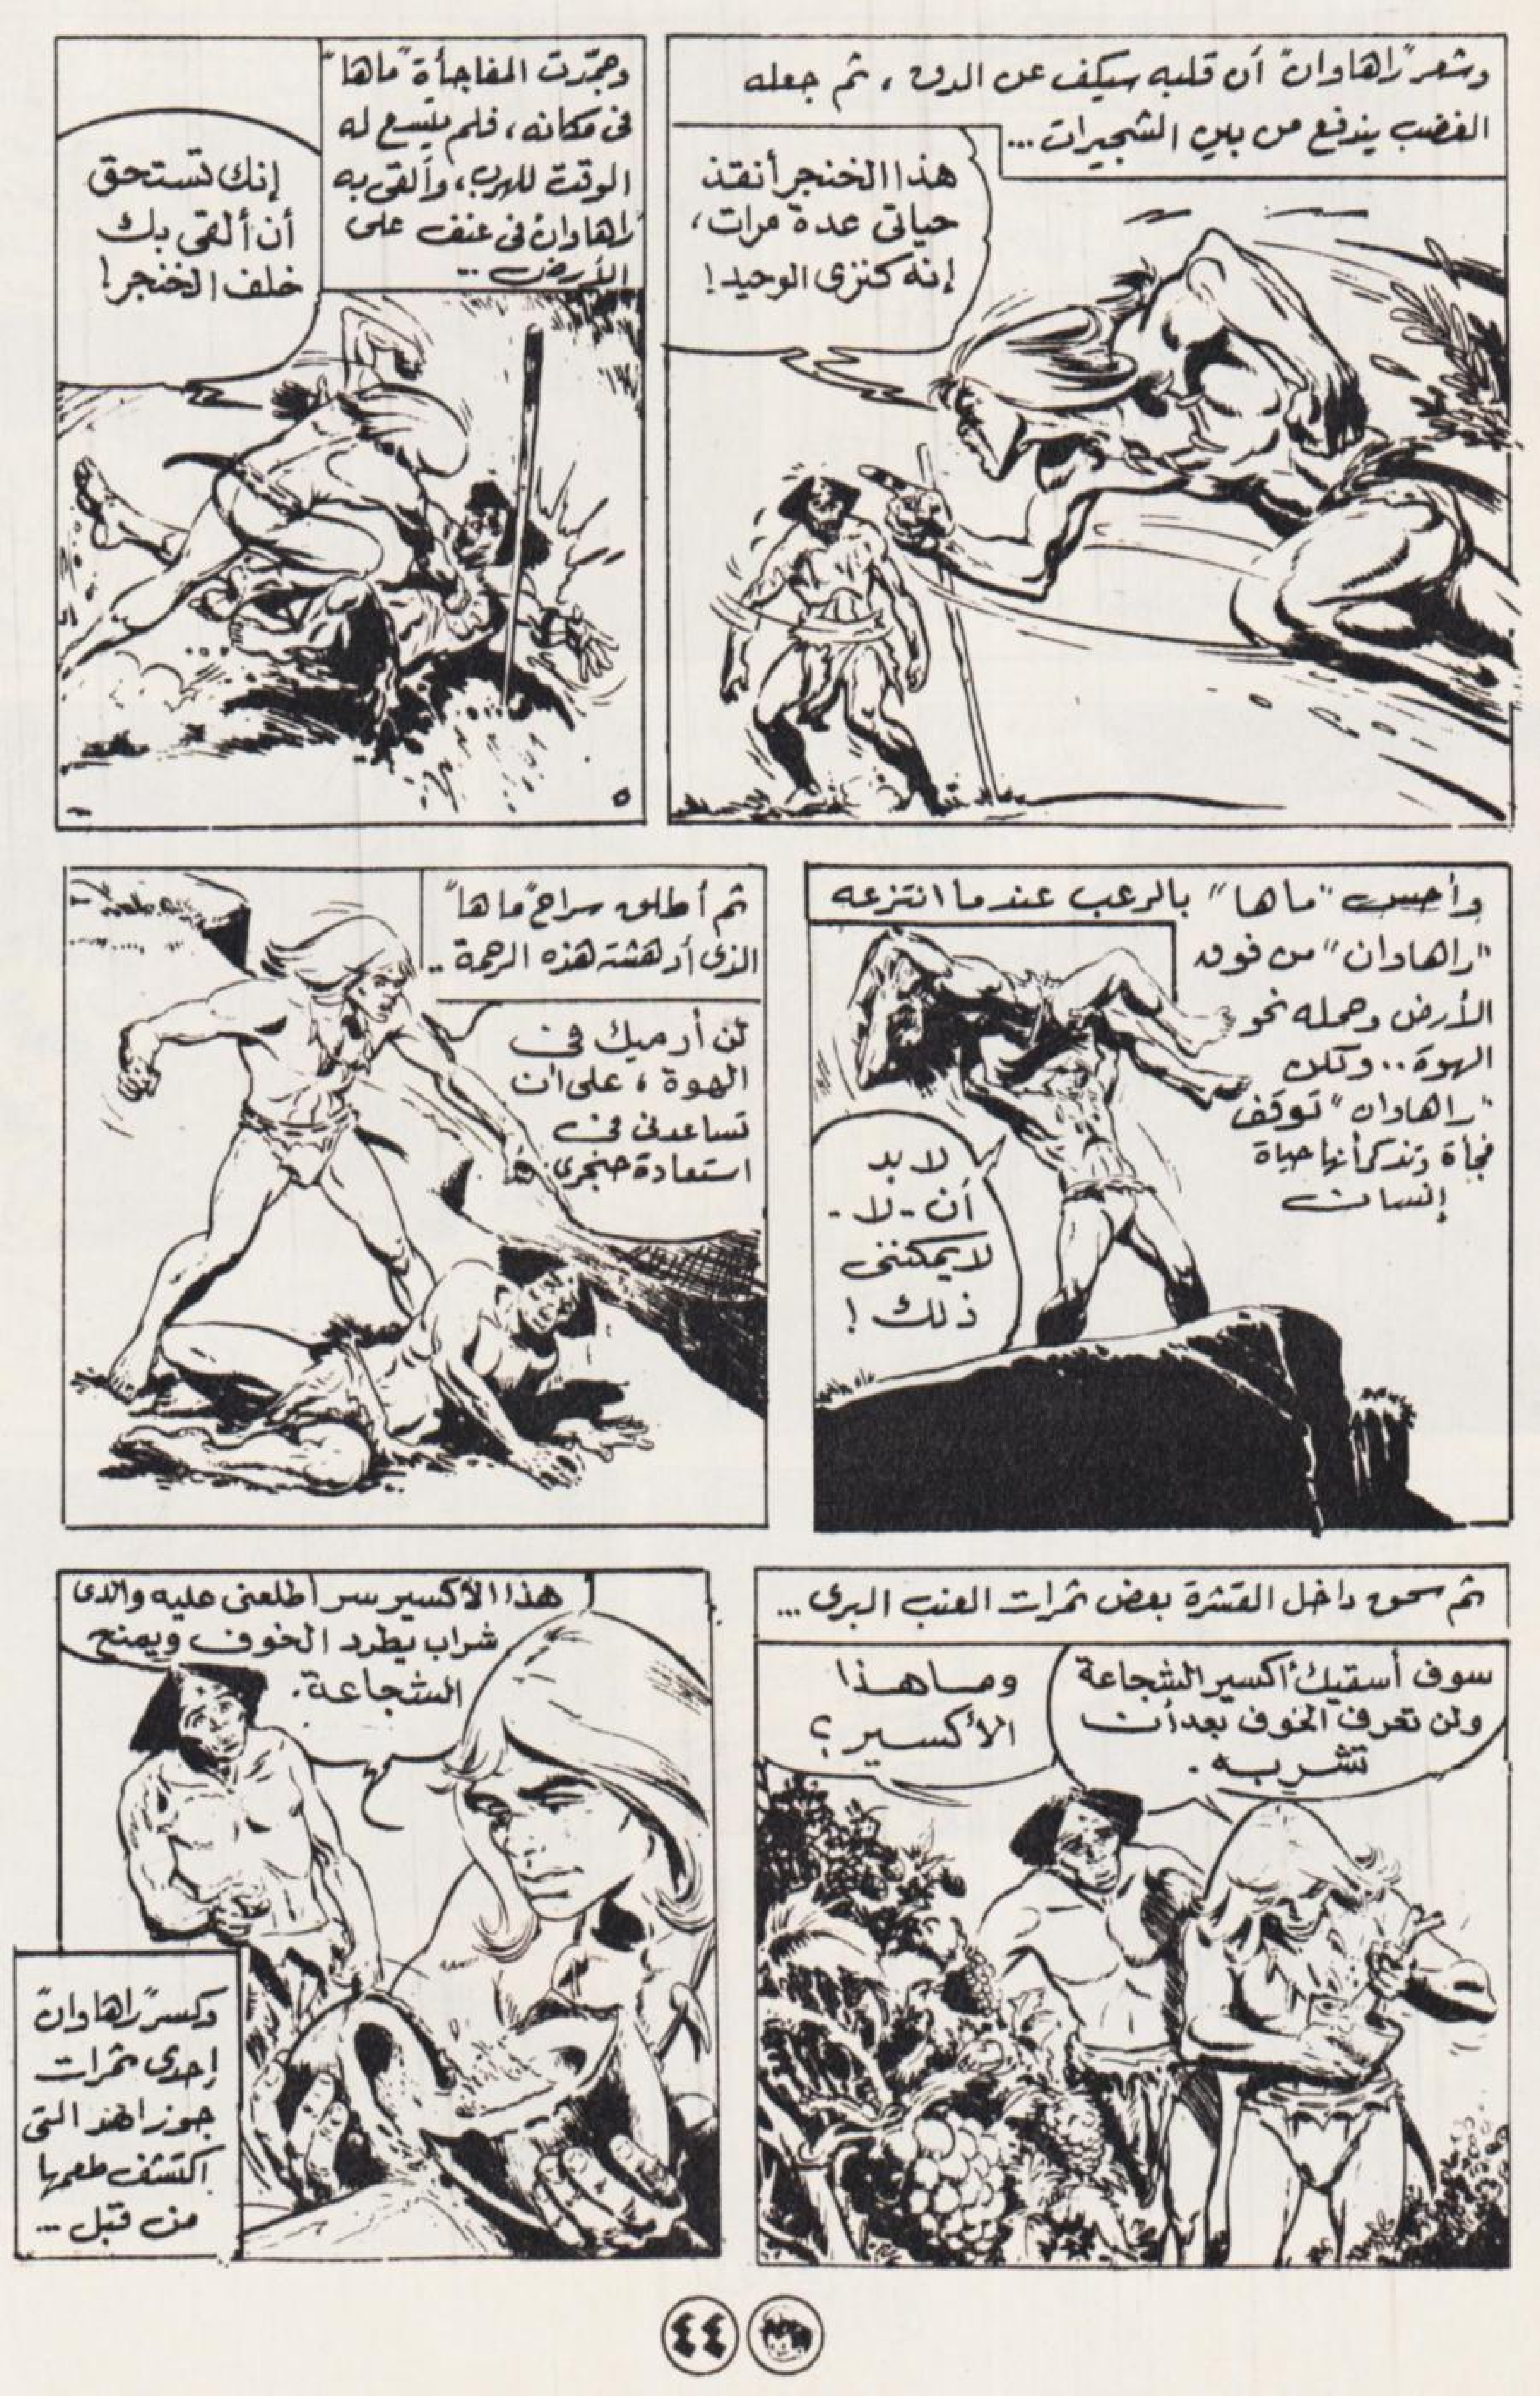 وشعر "راهاوان" أن قلبه سيكف عن الدق ، ثم جعله
الغضب يندفع من بين الشجيرات...
هذا الخنجر أنقذ
حياتى عدة مرات،
إنه كنزى الوحيد!
وجمّدت المفاجأة "ماها"
فى مكانه، فلم يتسع له
الوقت للهرب، وألقى به
"راهاوان" فى عنف على
الأرض ...
إنك تستحق
أن ألقى بك
خلف الخنجر!
وأحس "ماها" بالرعب عندما انتزعه
"راهاوان" من فوق
الأرض وحمله نحو
الهوة.. ولكن
"راهاوان" توقف
فجأة وتذكر أنها حياة
إنسان
لا بد
أن - لا -
لا يمكننى
ذلك !
ثم أطلق سراح "ماها"
الذى أدهشته هذه الرحمة ..
لن أرميك فى
الهوة ، على أن
تساعدنى فى
استعادة خنجرى.
ثم سحق داخل القشرة بعض ثمرات العنب البرى ...
سوف أسقيك أكسير الشجاعة
ولن تعرف الخوف بعد أن
تشربه .
وما هذا
الأكسير ؟
هذا الأكسير سر أطلعنى عليه والدى
شراب يطرد الخوف ويمنح
الشجاعة.
وكسر "راهاوان"
إحدى ثمرات
جوز الهند التى
اكتشف طعمها
من قبل ...
٤٤